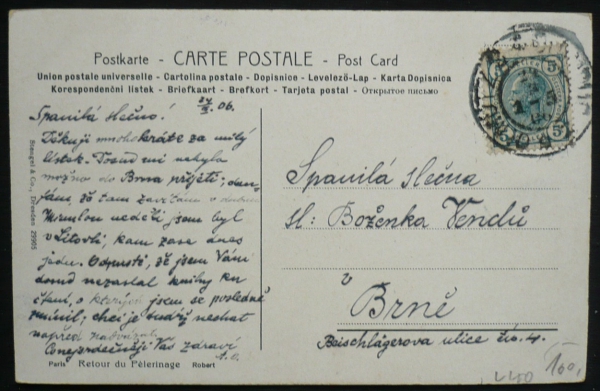 Postkarte - CARTE POSTALE - Post Card
Union postale universelle - Cartolina postale - Dopisnice - Levelező-Lap - Karta Dopisnica
Korespondenční listek - Briefkaart - Brefkort - Tarjeta postal - Открытое письмо
06.
Spanilá slečno!
Děkuji mnohokráte za milý
lístek. Dosud mi nebylo
možno do Brna přijeti;
tam v
neděli jsem byl
v Litovli, kam zase dnes
jedu. Odpusťte, že jsem Vám
dosud nezaslal knihy ku
čtení, o kterých jsem se posledně
zmínil; chci je
napřed
Vás zdraví
Stengel & Co., Dresden 29905
Paris Retour du Pélerinage Robert
Spanilá slečna
sl: Boženka Vendů
v
Brně
Beischlägerova ulice čís. 4.
5
5